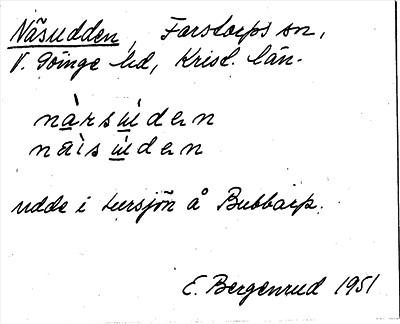 Näsudden, Farstorps sn,
V. Göinge hd, Krist. län.
udde i Lursjön å Bubbarp.
E. Bergenrud 1951